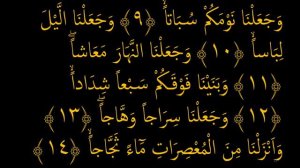 وَجَعَلْنَا نَوْمَكُمْ سُبَاتاً ﴿٩﴾ وَجَعَلْنَا الَّيْلَ
لِبَاساً ﴿١٠﴾ وَجَعَلْنَا النَّهَارَ مَعَاشاً
﴿١١﴾ وَبَنَيْنَا فَوْقَكُمْ سَبْعاً شِدَاداً
﴿١٢﴾ وَجَعَلْنَا سِرَاجاً وَهَّاجاً ﴿١٣﴾
وَأَنْزَلْنَا مِنَ الْمُعْصِرَاتِ مَٓاءً ثَجَّاجاً ﴿١٤﴾